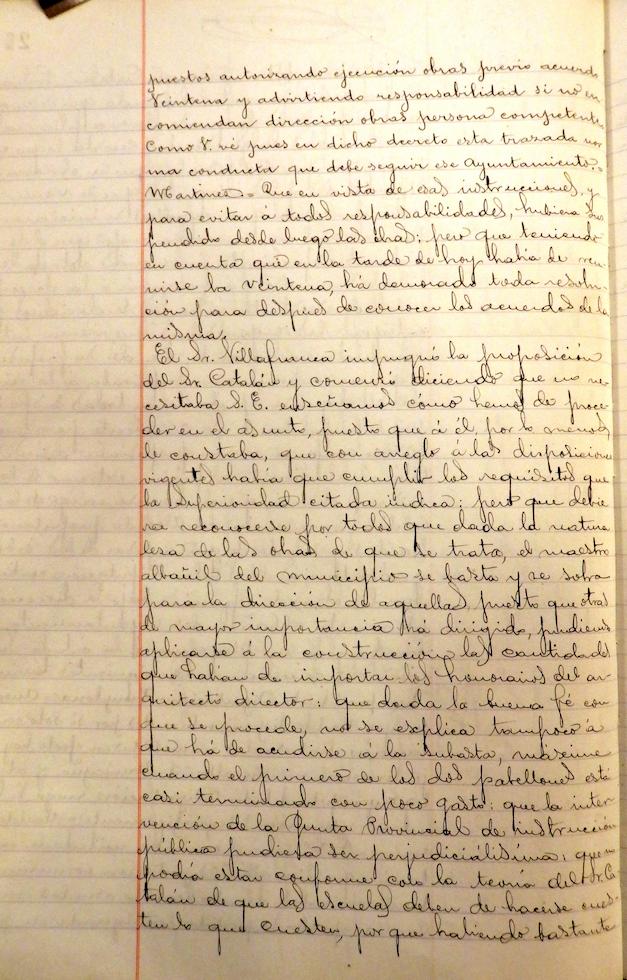 puestos autorizando ejecución obras previo acuerdo
Veintena y advirtiendo responsabilidad si no en
comiendan dirección obras persona competente.
Como V. vé pues en dicho decreto esta trazada nor
ma conducta que debe seguir ese Ayuntamiento.=
Martinez.= Que en vista de esas instrucciones, y
para evitar á todos responsabilidades, hubiera sus
pendido desde luego las obras; pero que teniendo
en cuenta que en la tarde de hoy había de reu
nirse la Veintena, há demorado toda resolu
ción para despues de conocer los acuerdos de la
misma.
El Sr. Villafranca impugnó la proposición
del Sr. Catalán y comenzó diciendo que no ne
cesitaba S. E. enseñarnos cómo hemos de proce
der en el asunto, puesto que á él, por lo menos,
le constaba, que con arreglo á las disposiciones
vigentes había que cumplir los requisitos que
la Superioridad citada indica; pero que debie
ra reconocerse por todos que dada la natura
leza de las obras de que se trata, el maestro
albañil del municipio se basta y se sobra
para la dirección de aquellas, puesto que otras
de mayor importancia há dirigido, pudiendo
aplicarse á la construcción las cantidades
que habían de importar los honorarios del ar
quitecto director: que dada la buena fé con
que se procede, no se esplica tampoco á
que há de acudirse á la subasta, máxime
cuando el primero de los dos pabellones está
casi terminado con poco gasto: que la inter
vención de la Junta Provincial de instrucción
pública pudiera ser perjudicialísima: que no
podía estar conforme con la teoría del Sr. Ca
talán de que las escuelas deben de hacerse cues
ten lo que cuesten, por que habiendo bastante